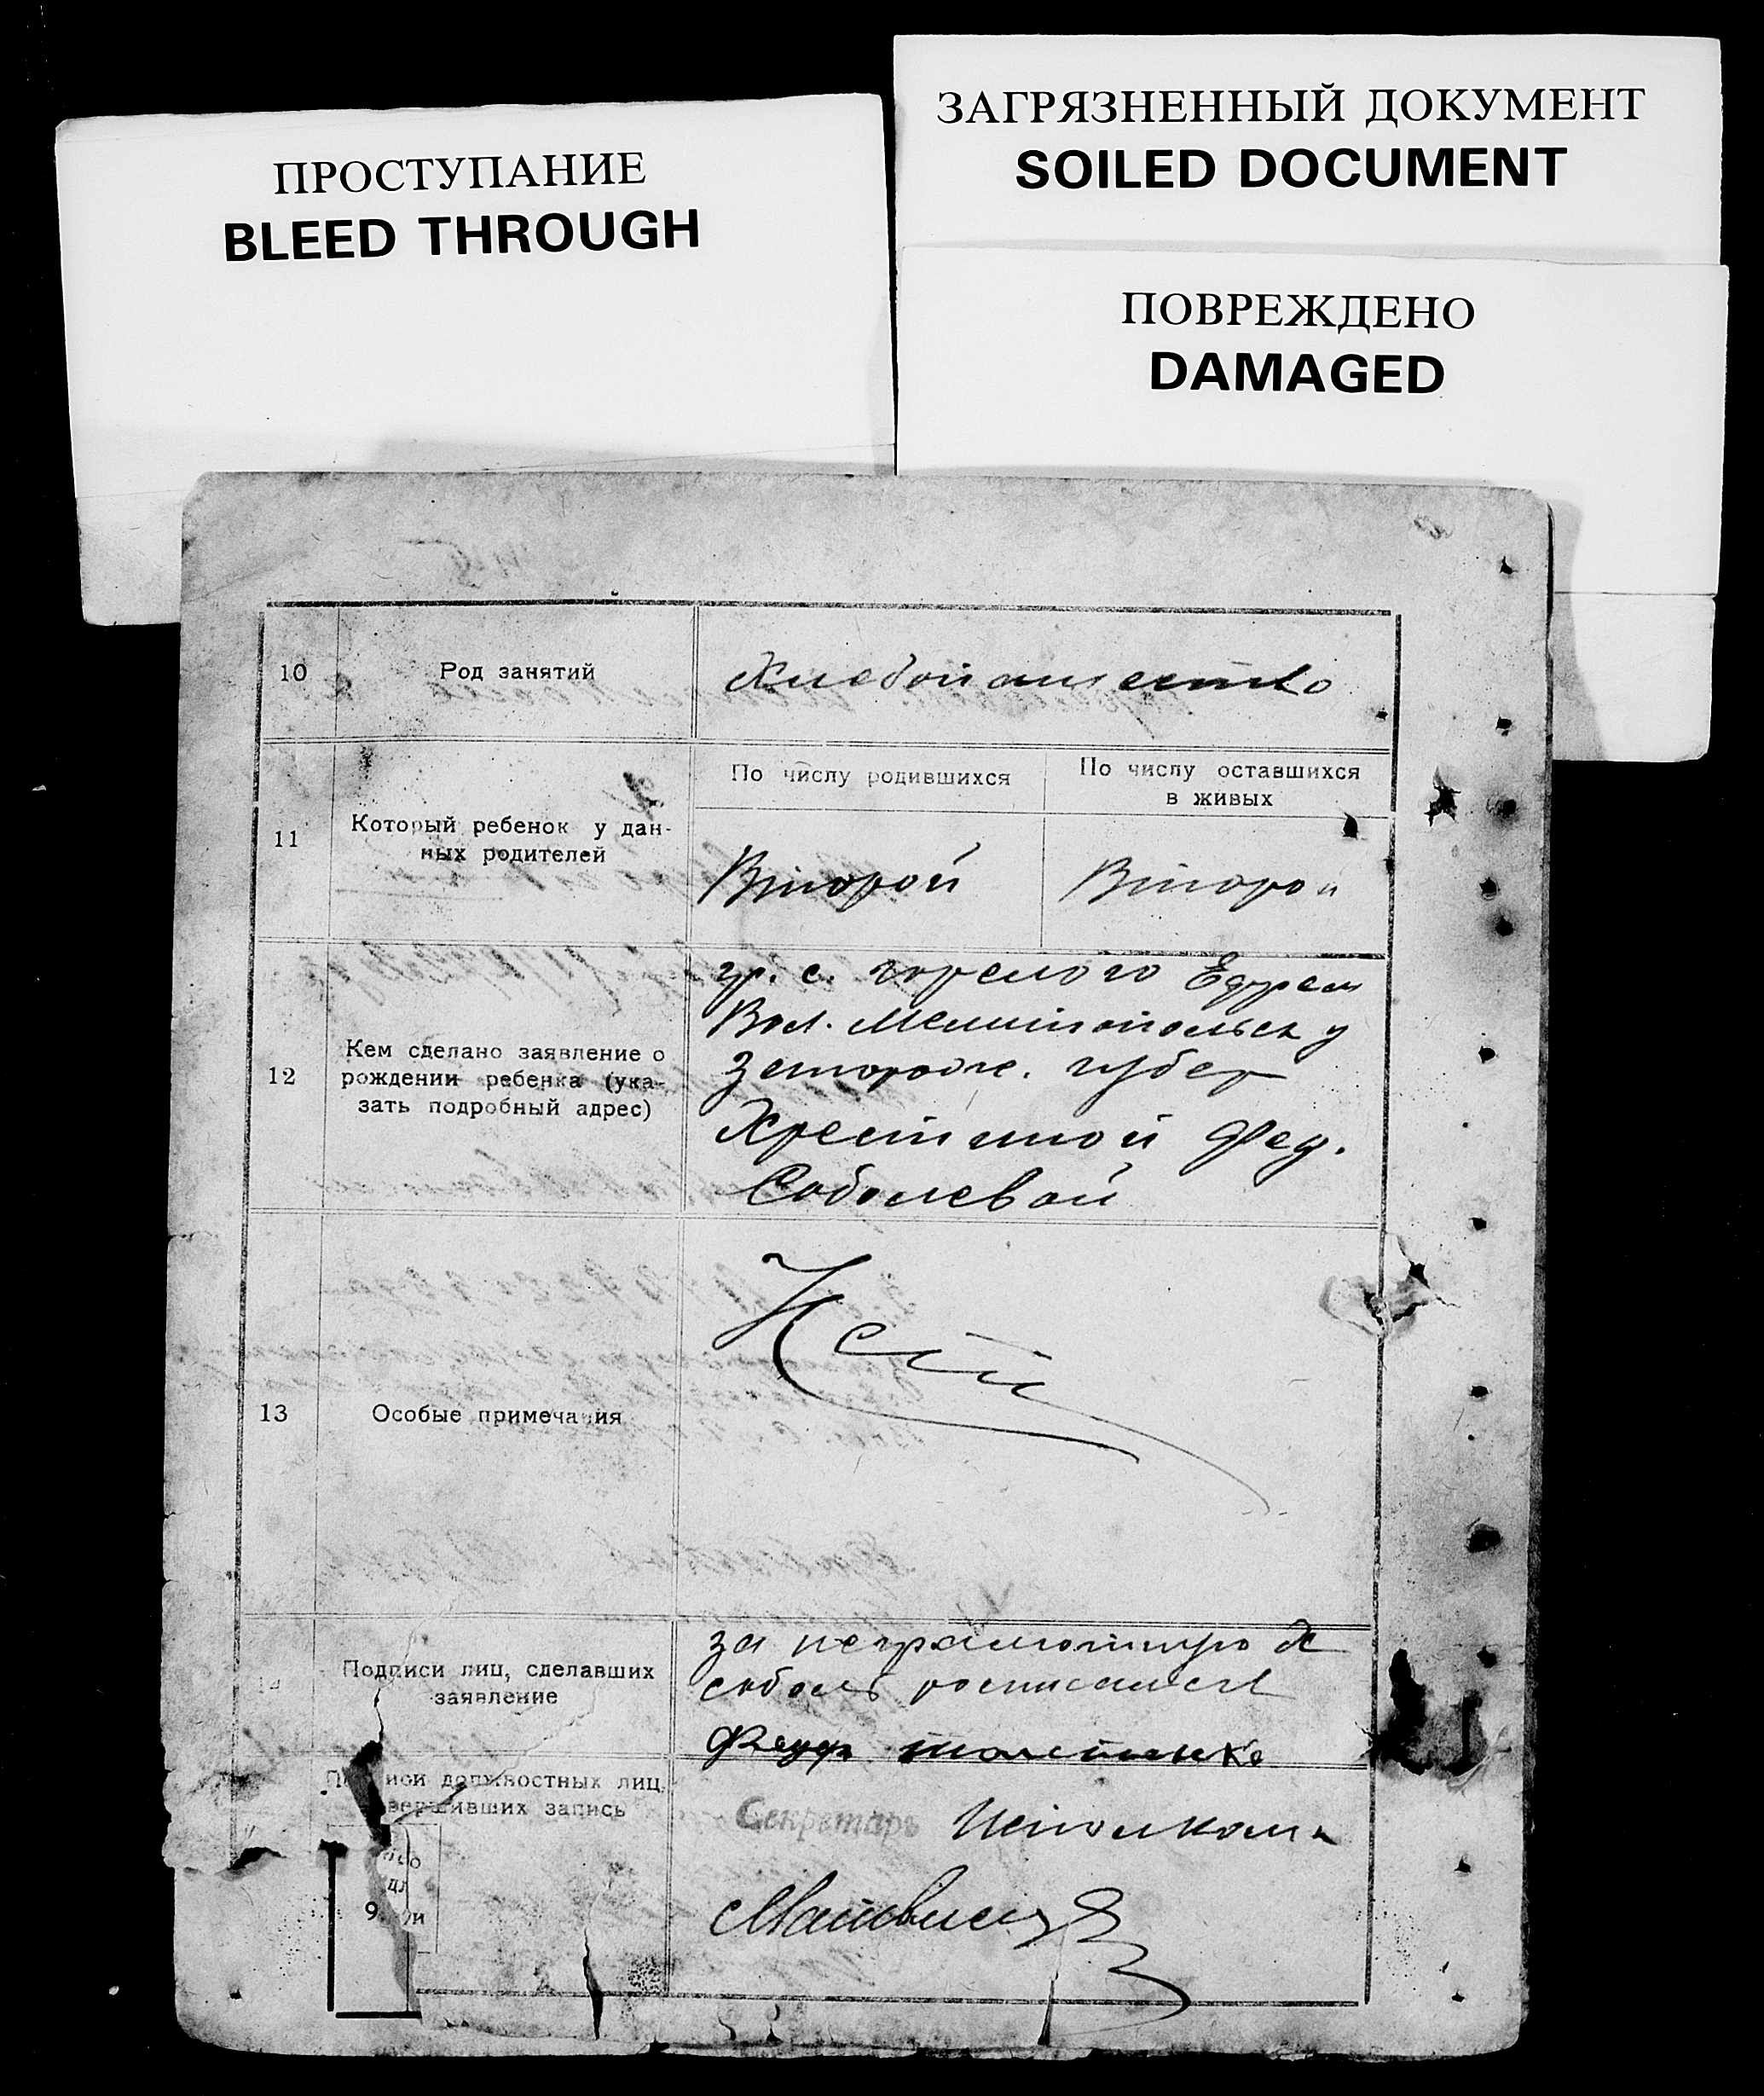 ПРОСТУПАНИЕ
BLEED THROUGH
ЗАГРЯЗНЕННЫЙ ДОКУМЕНТ
SOILED DOCUMENT
ПОВРЕЖДЕНО
DAMAGED
10
Род занятий
Хлебопашество
11
Который ребенок у дан-
ных родителей
По числу родившихся
По числу оставшихся
в живых
Второй
Второй
12
Кем сделано заявление о
рождении ребенка (ука-
зать подробный адрес)
гр. с. Горелого Ефрем
Вол. Мелитопольск у
Запорож. губер
Хрестиной Фед.
Соболевой
13
Особые примечания
Нет
14
Подписи лиц, сделавших
заявление
за неграмотную Х
соболь росписался
Подписи должностных лиц,
совершивших запись
Секретарь Исполкома